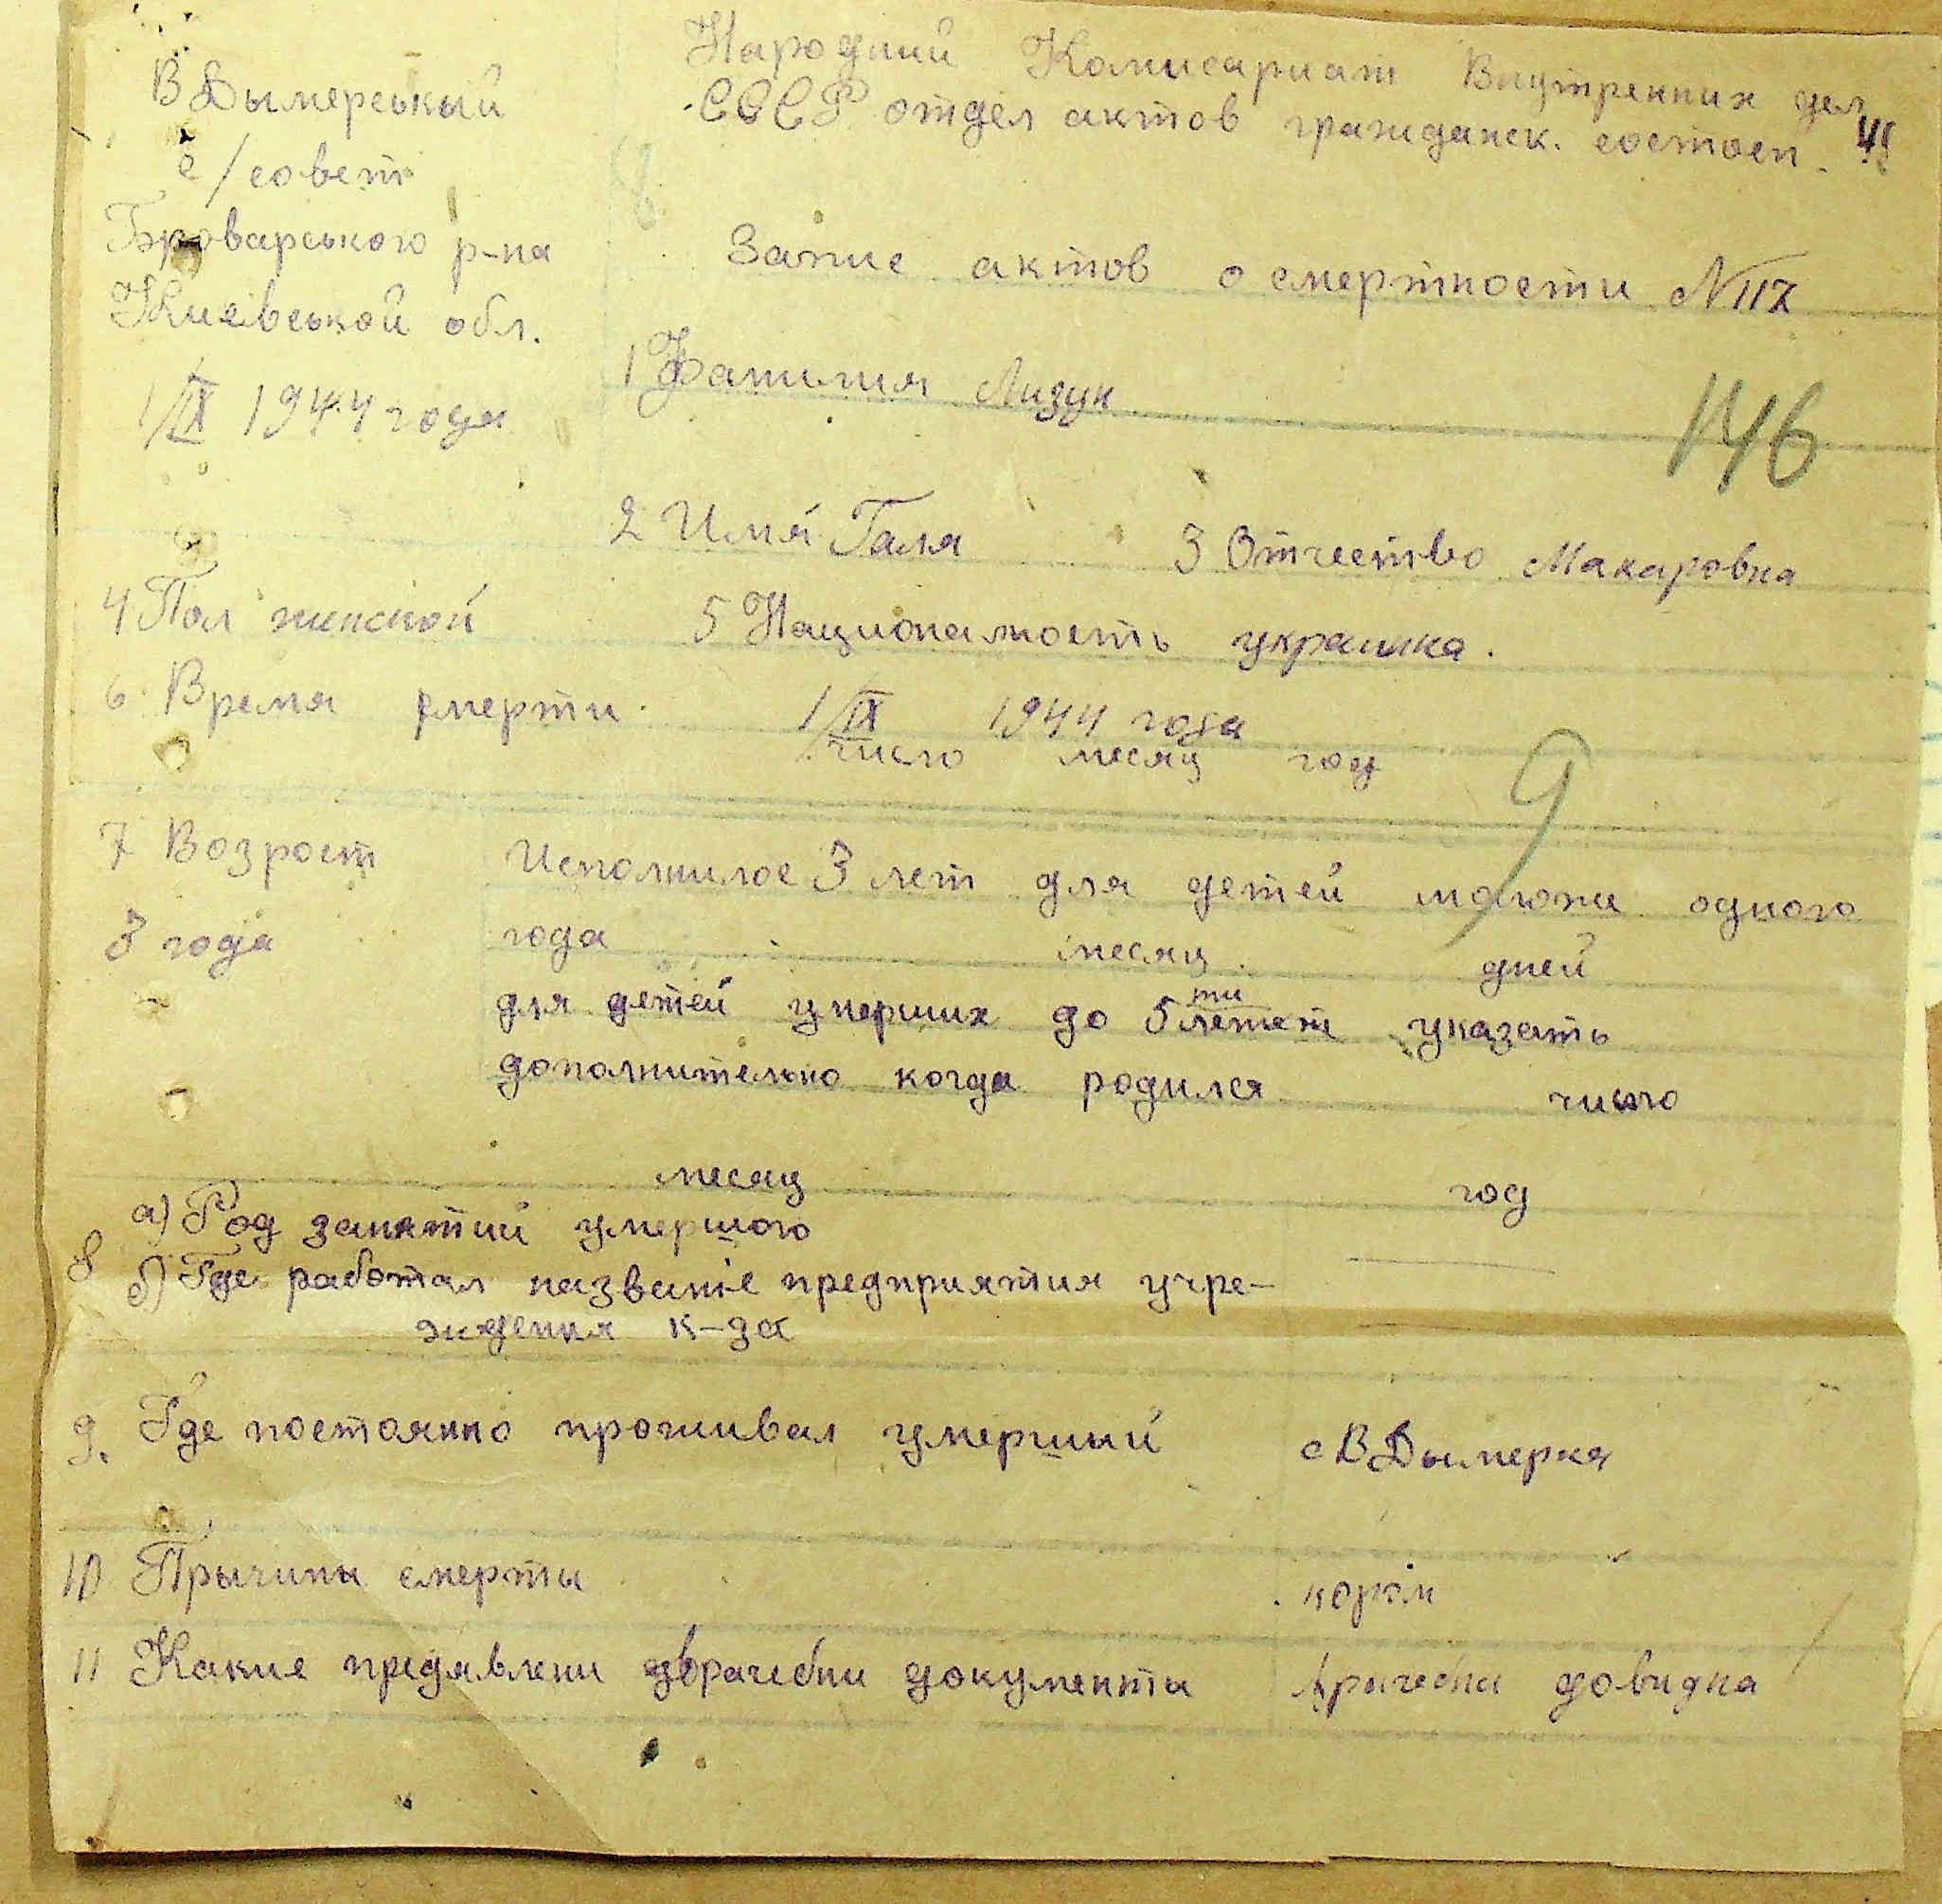 В Дымерський
с/совет
Броварського р-на
Киевськой обл.
1/IX 1944 года
Народний Комисариат Внутренних дел
СССР отдел актов гражданск. состоян.
Запис актов о смертности N 117
1 Фамилия Лизун
146
2 Имя Галя 3 Отчество Макаровна
4 Пол женской 5 Национальность украинка.
6 Время смерти 1/IX 1944 года
число месяц год
9
7 Возрост Исполнилос 3 лет для детей моложе одного
3 года года месяц дней
для детей умерших до 5ти летет указать
дополнительно когда родился число
месяц год
8 а) Род занятий умершого
б) Где работал название предприятия учре-
ждения к-да
9. Где постоянно проживал умерший с В Дымерка
10 Прычины смерты корім
11 Какие предявлени документы довидка